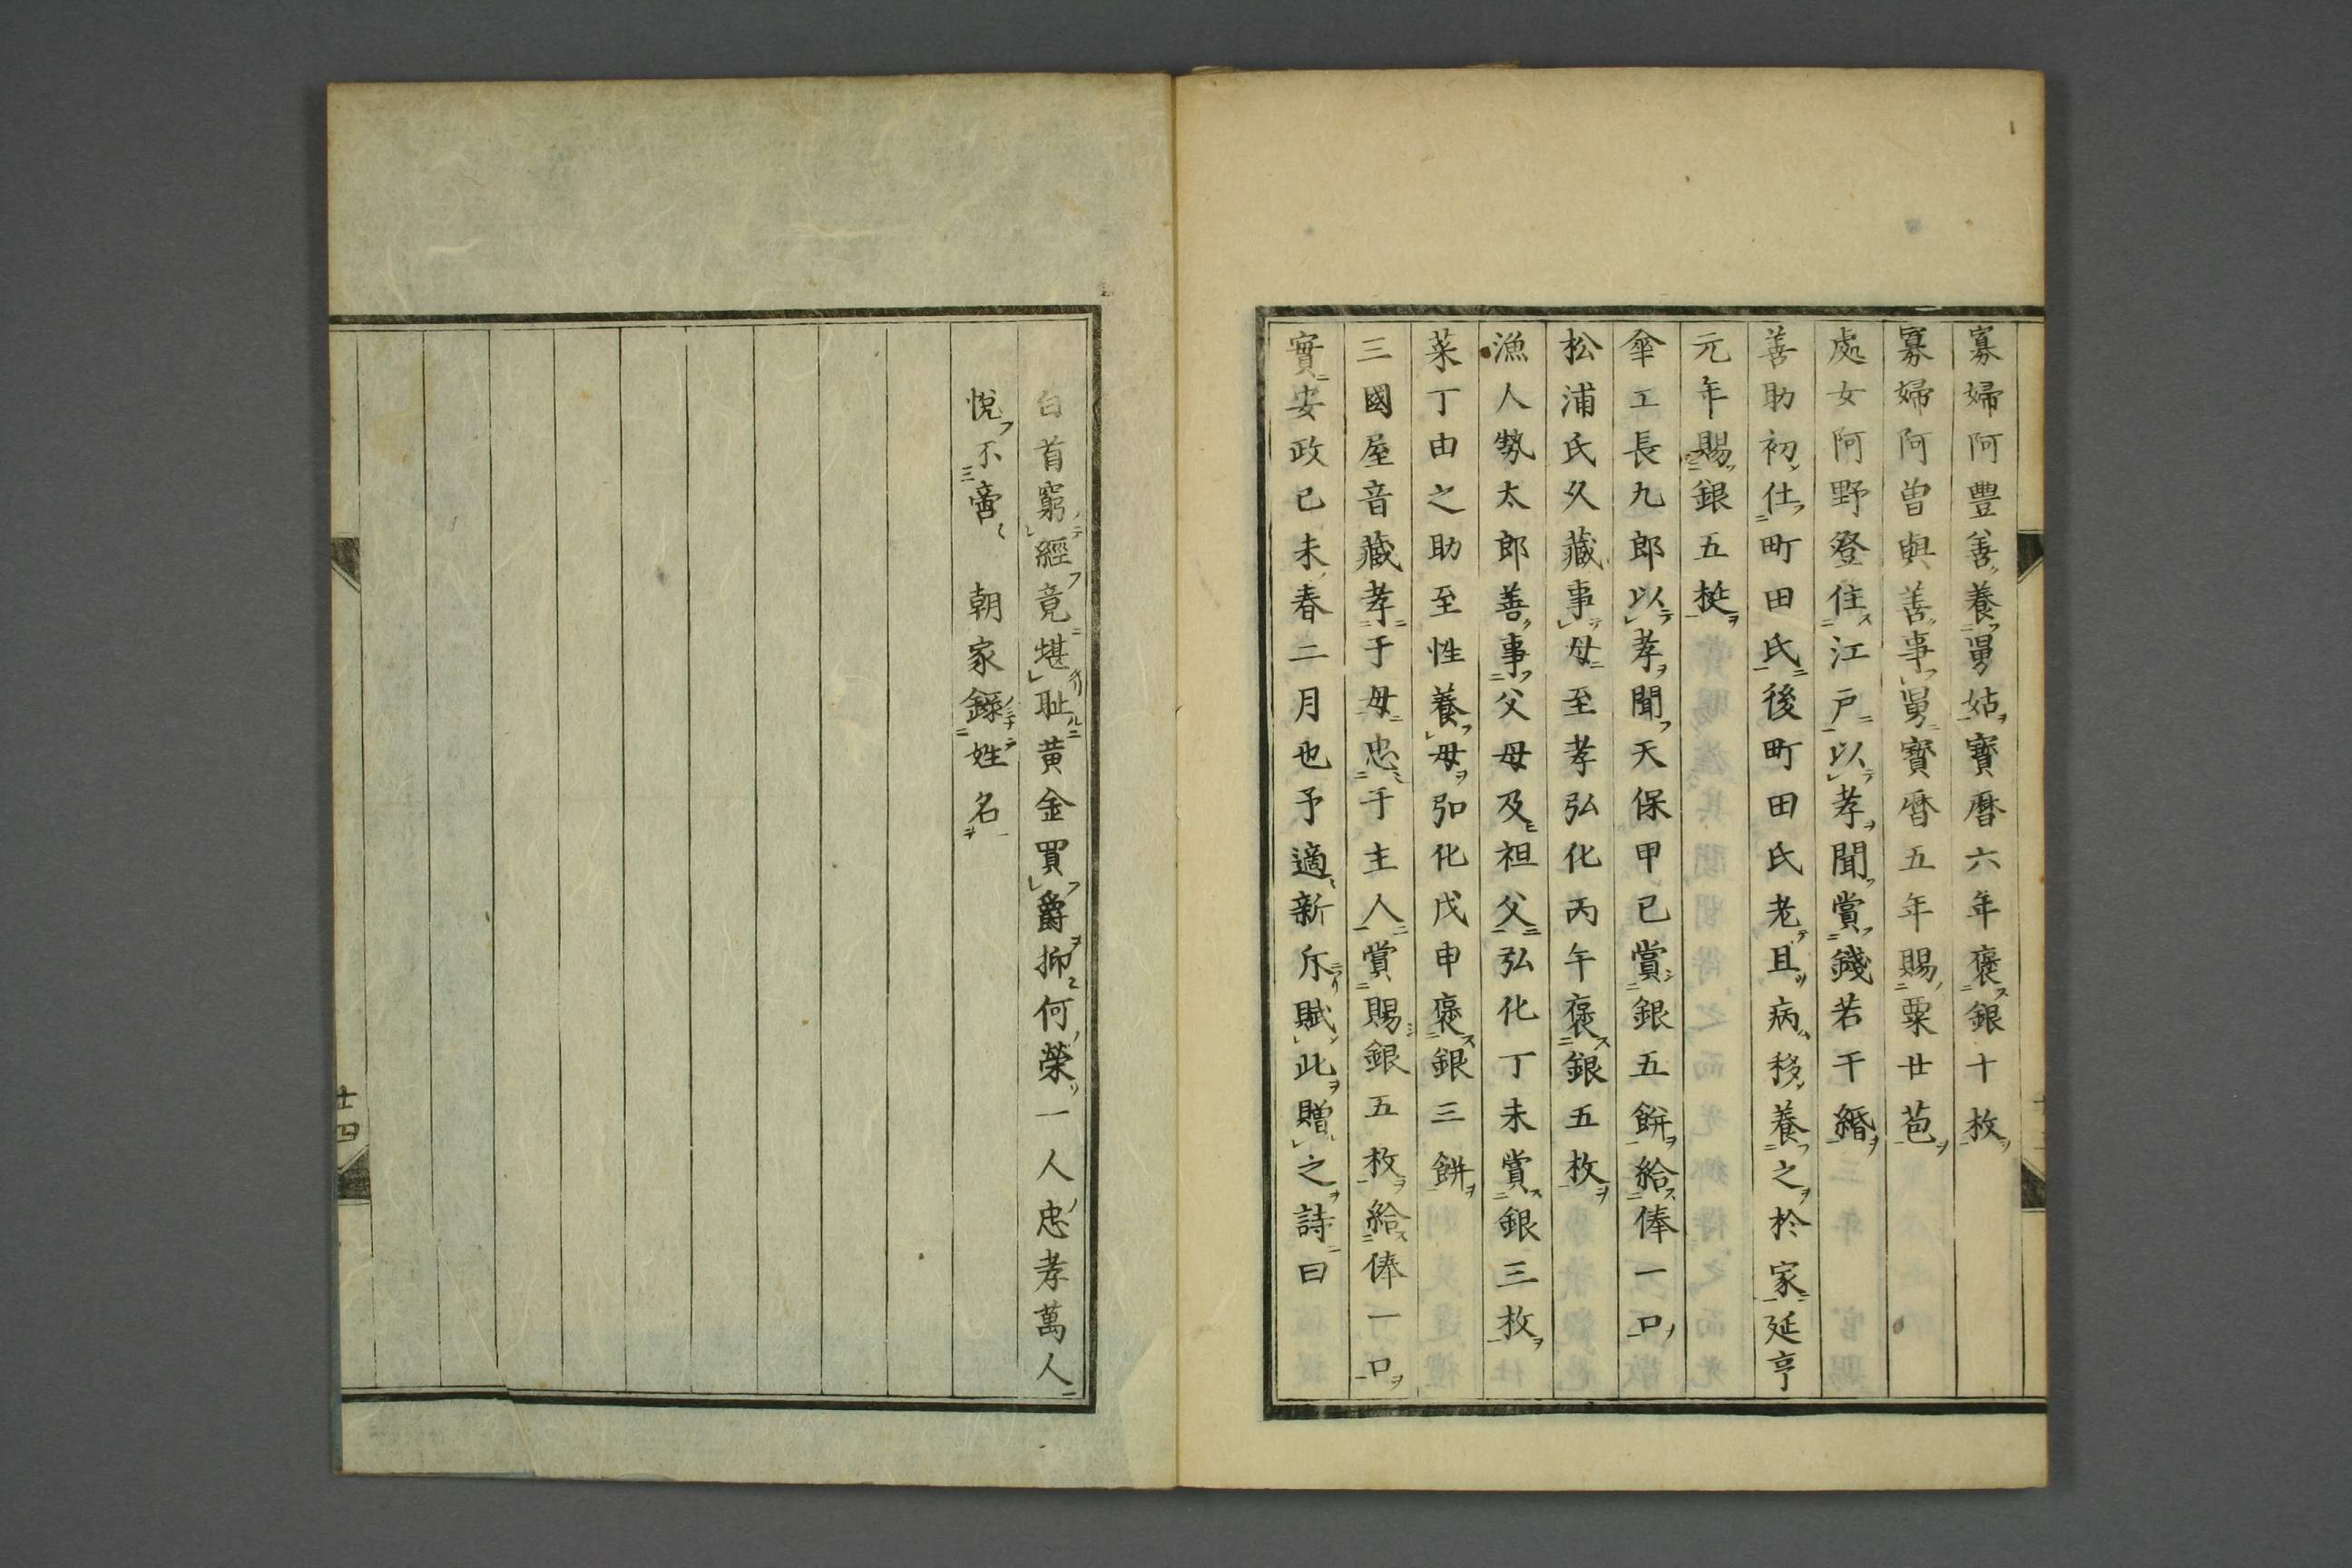 寡婦阿豐善養舅姑寶暦六年褒銀十枚
寡婦阿曽與善事舅寶暦五年賜粟廿苞
處女阿野登住江戸以孝聞賞錢若干緡
善助初仕町田氏後町田氏老且病移養之於家延享
元年賜銀五梃
傘工長九郎以孝聞天保甲巳賞銀五餅給俸一口
松浦氏久藏事母至孝弘化丙午褒銀五枚
漁人勢太郎善事父母及祖父弘化丁未賞銀三枚
菜丁由之助至性養母弘化戊申褒銀三餅
三國屋音藏孝于母忠于主人賞賜銀五枚給俸一口
實安政己未春二月也予適新斥賦此贈之詩曰
白首窮經竟堪耻黄金買爵抑何榮一人忠孝萬人
悅不啻朝家錄姓名
廿四